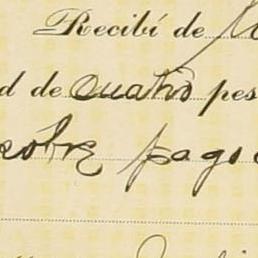 Recibí de
d de cuatro pes
sobre pago